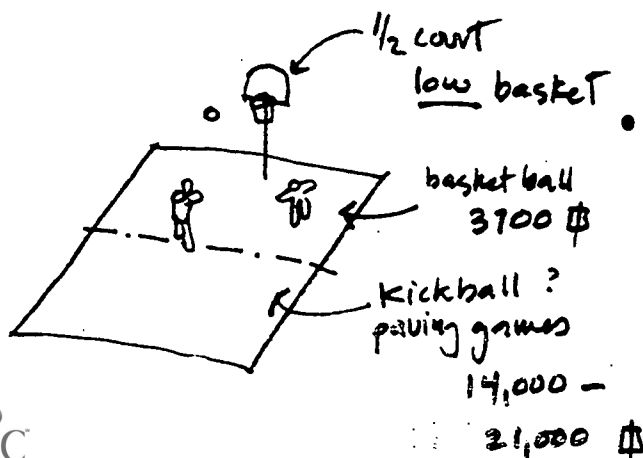 1/2 court
low basket
basketball
3700 ⏍
kickball ?
paving games
14,000 –
21,000 ⏍
C